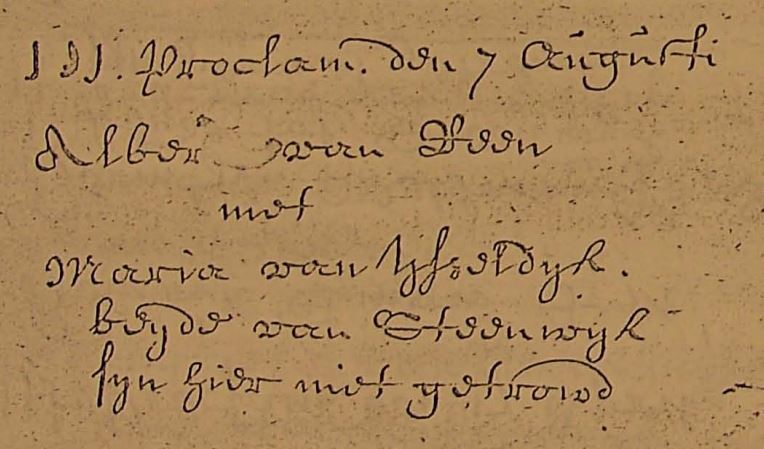 III. Proclam. den 7 Augusti
Alber van Veen
met
Maria van Ysseldyk.
beyde van Steenwyk
syn hier niet getrowd